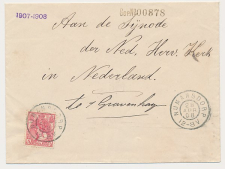 1907-1908
00878
Aan de Synode
der Ned. Herv. Kerk
in Nederland.
te 's Gravenhage
NUMANSDORP